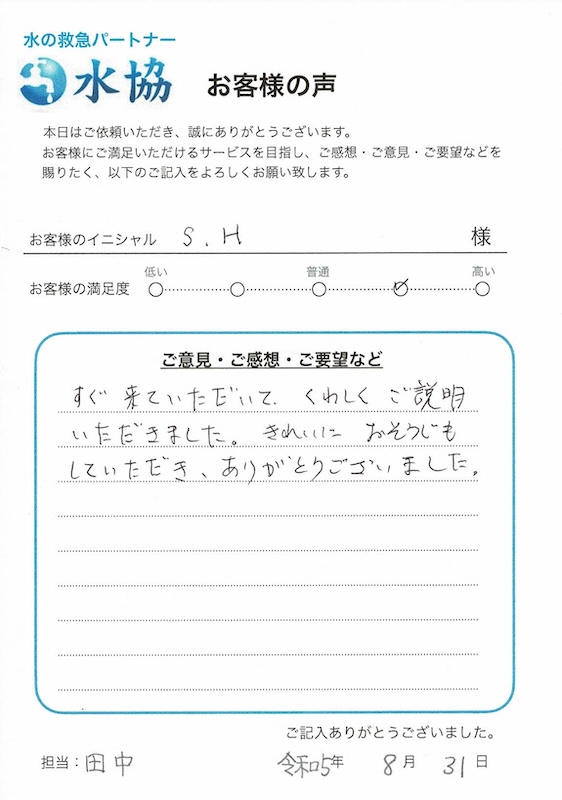 水の救急パートナー
水協 お客様の声
本日はご依頼いただき、誠にありがとうございます。
お客様にご満足いただけるサービスを目指し、ご感想・ご意見・ご要望などを
賜りたく、以下のご記入をよろしくお願い致します。
お客様のイニシャル S.H 様
低い 普通 高い
お客様の満足度
ご意見・ご感想・ご要望など
すぐ来ていただいて、くわしくご説明
いただきました。きれいに おそうじも
していただき、ありがとうございました。
ご記入ありがとうございました。
担当：田中 令和5年 8月 31日